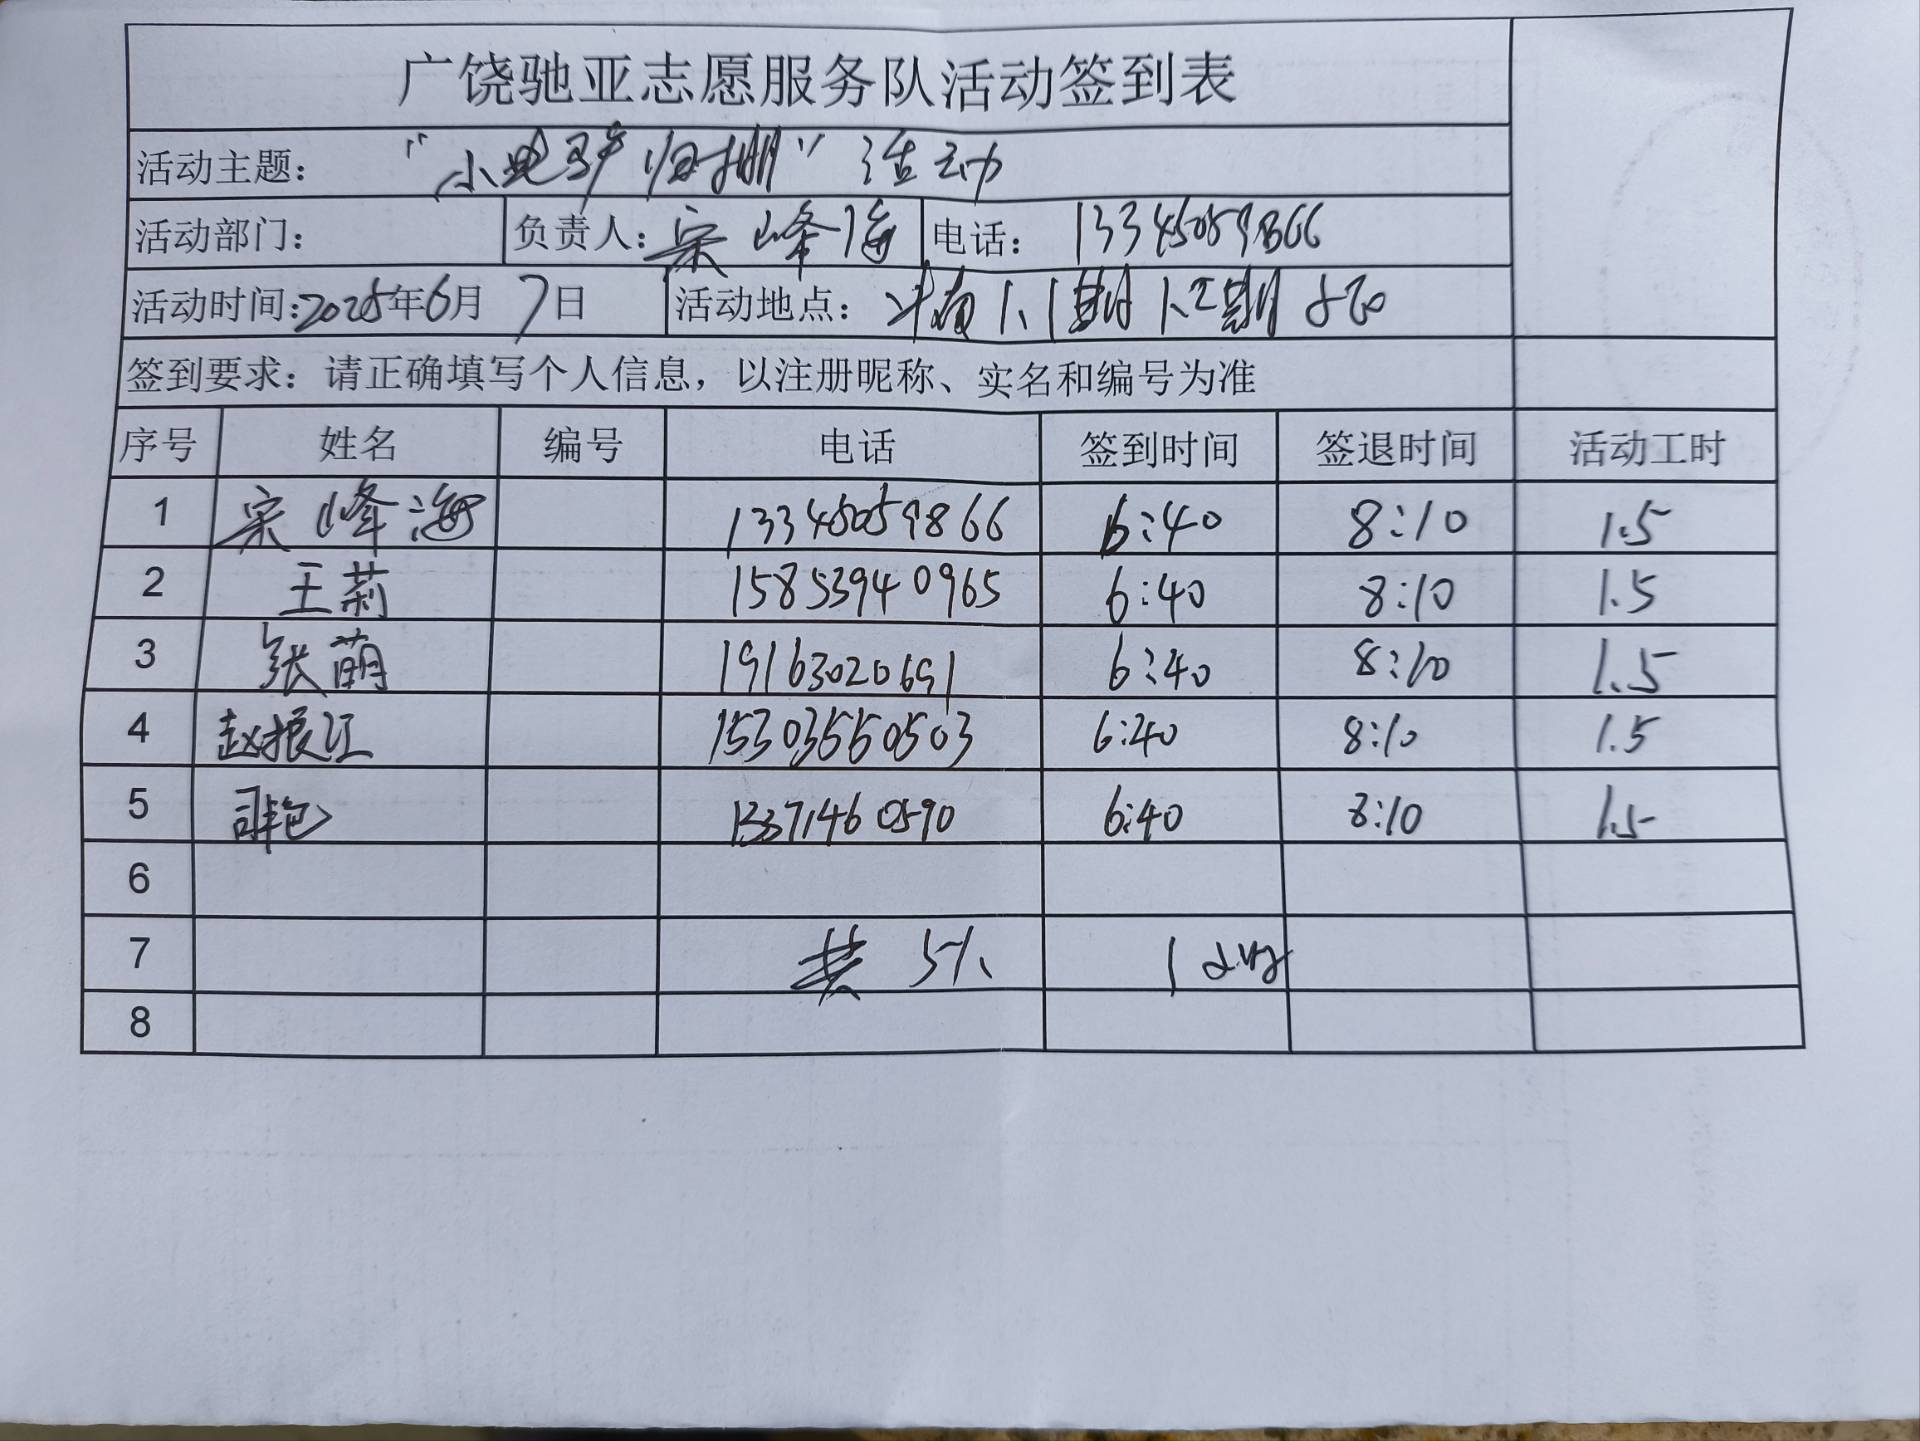 广饶驰亚志愿服务队活动签到表
活动主题： “小电驴归棚”活动
活动部门： 负责人：宋峰海 电话： 13345059866
活动时间：2025年6月7日 活动地点：
签到要求：请正确填写个人信息，以注册昵称、实名和编号为准
序号 姓名 编号 电话 签到时间 签退时间 活动工时
1 宋峰海 13345059866 6:40 8:10 1.5
2 王莉 15853940965 6:40 8:10 1.5
3 张萌 19163020691 6:40 8:10 1.5
4 赵振江 15303550503 6:40 8:10 1.5
5 13371460590 6:40 8:10 1.5
6
7 共 5人
8